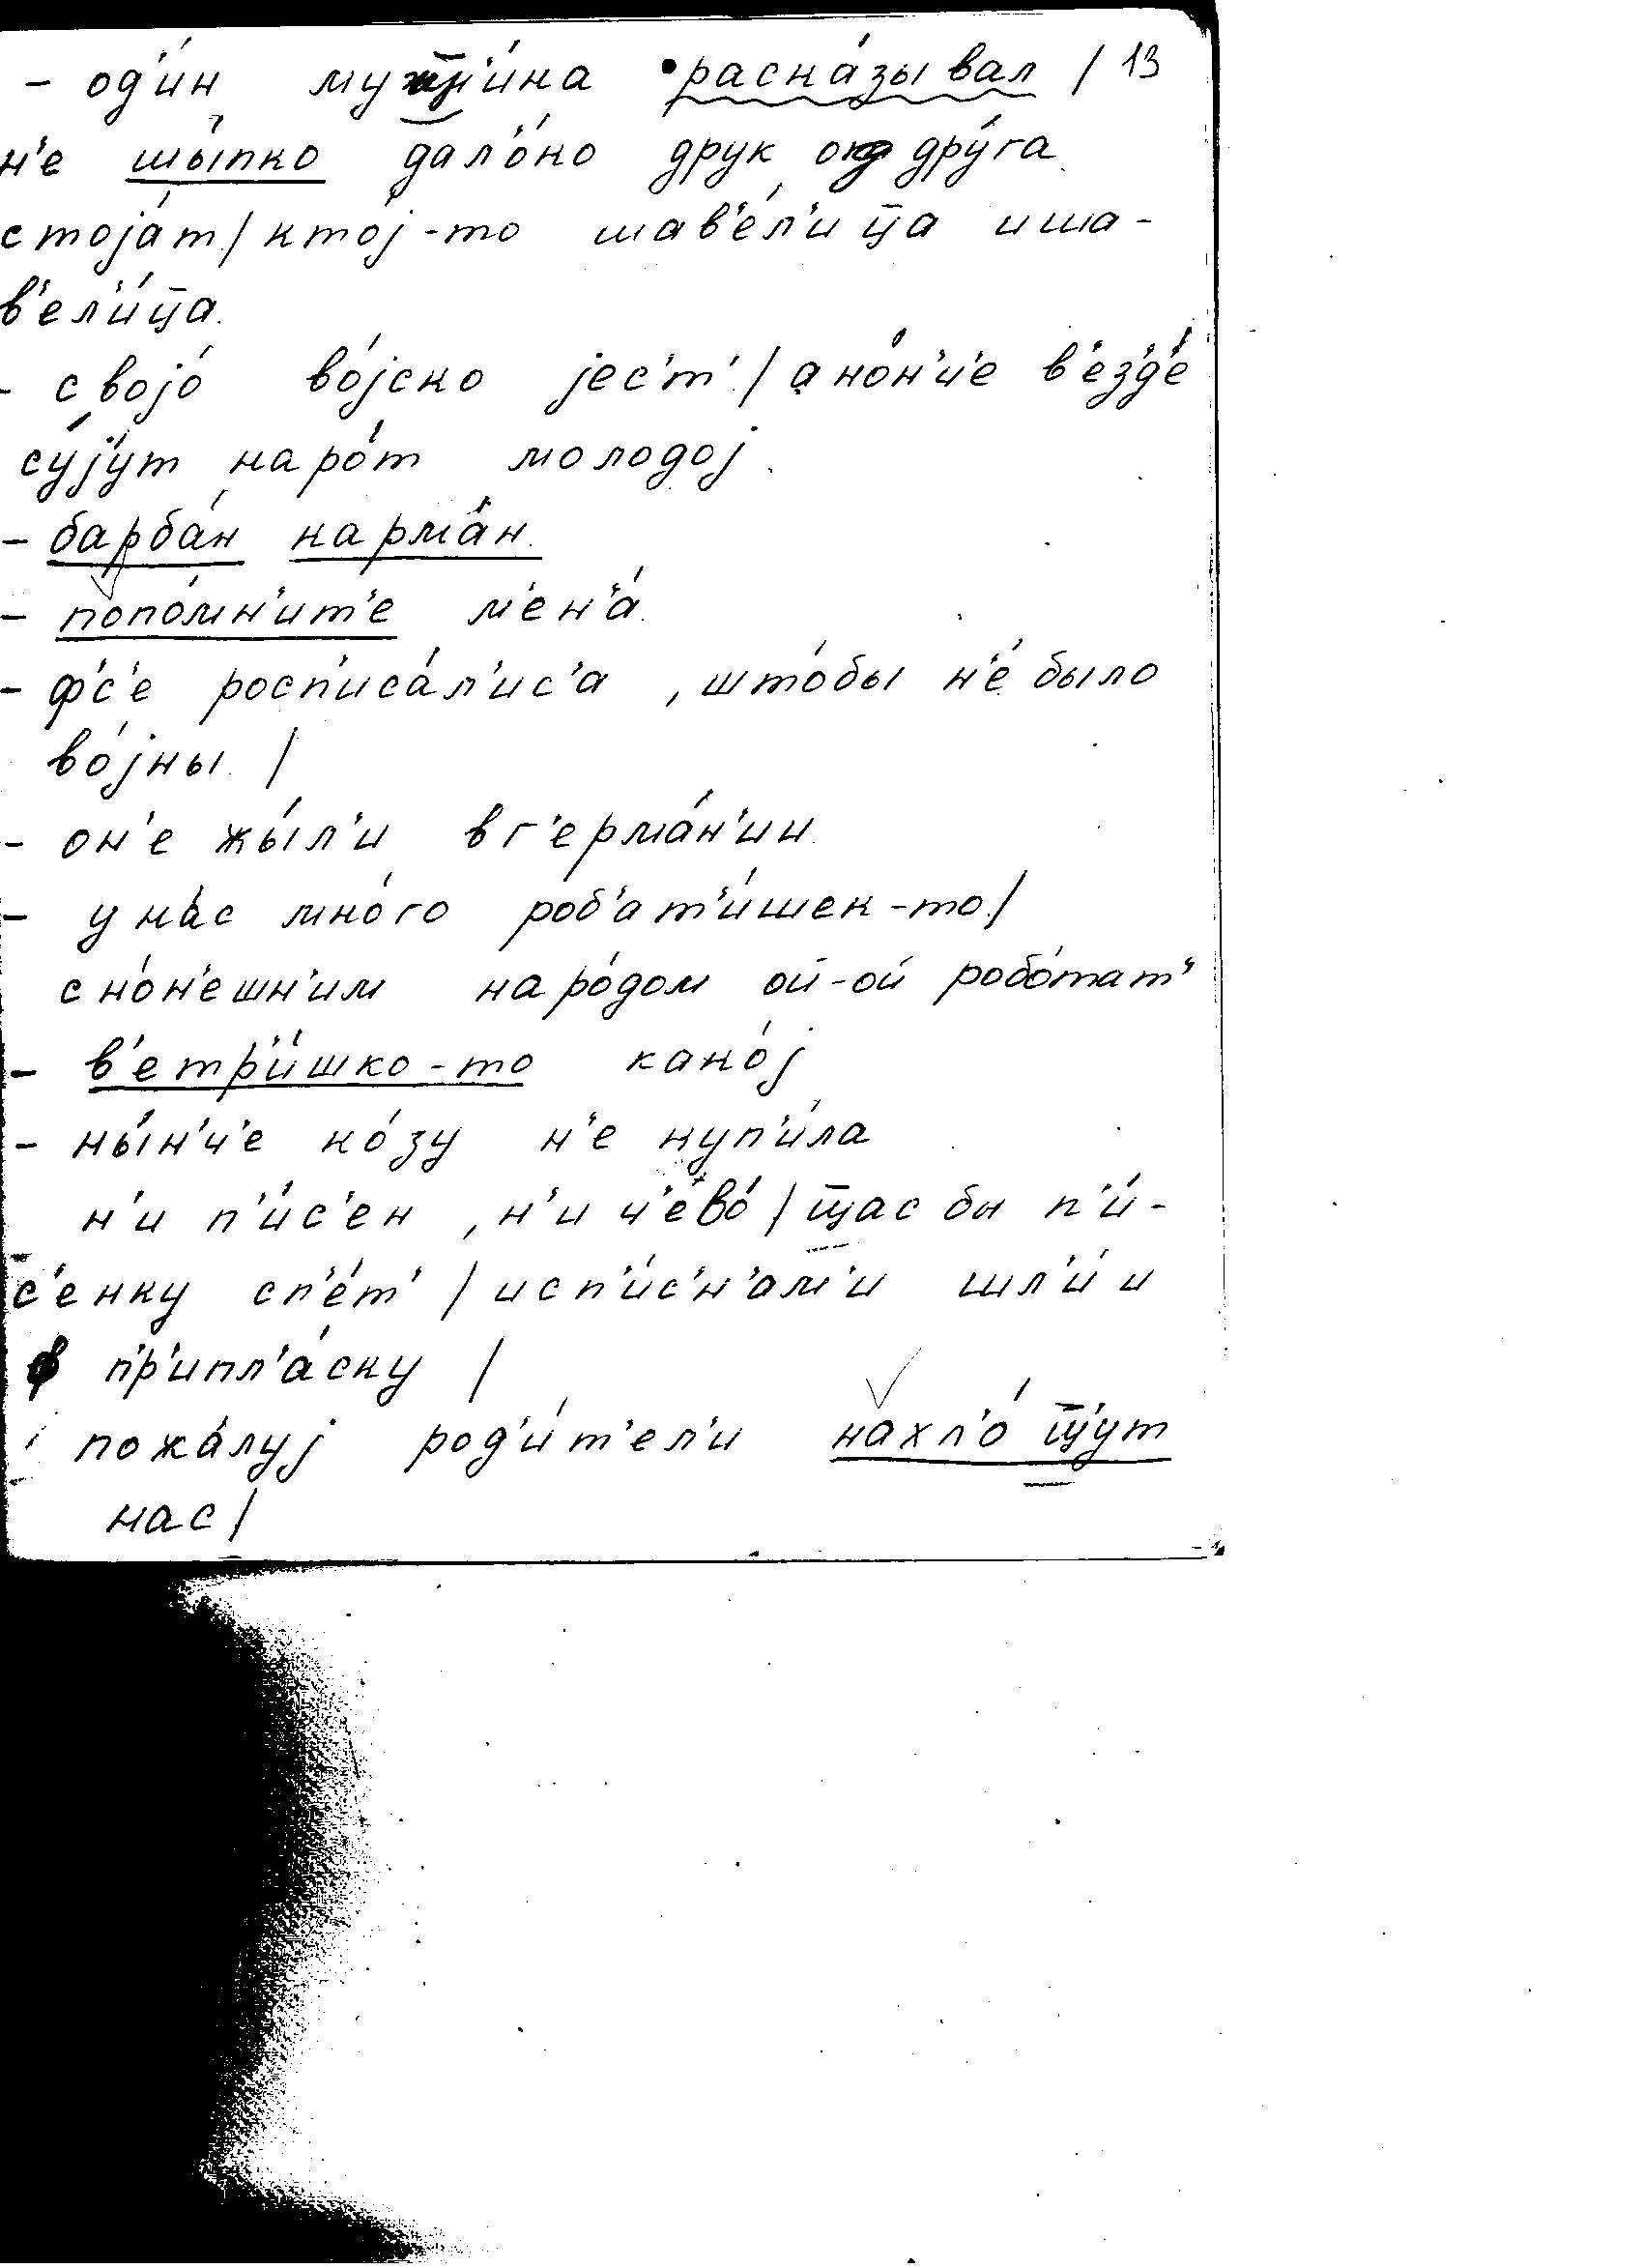 - од'и́н мущ'и́на раска́зывал / 13
н'е шы́пко дал'о́ко друк од дру́га
стоја́т / ктој-то шав'е́л'ица и ша-
в'ел'и́ца.
- својо́ во́јско јес'т' / а но́н'ч'е в'езд'е́
су́јут наро́т молодој.
- барба́н карма́н.
- попо́мн'ит'е м'ен'а́.
- ф'с'е росп'иса́л'ис'а, што́бы н'е́ было
во́јны /
- он'е жы́л'и в г'ерма́н'ии.
- у на́с мно́го роб'ат'и́шек-то /
с но́н'ешн'им наро́дом ой-ой робо́тат'
- в'етр'и́шко-то како́ј
- ны́н'ч'е ко́зу н'е куп'и́ла
н'и п'и́с'ен, н'и ч'ево́ / щас бы п'и́-
с'енку сп'е́т' / и с п'и́с'н'ам'и шл'и́ и
пр'ипл'а́ску /
пожа́луј род'и́т'ел'и нахл'о́щ'ут
нас /